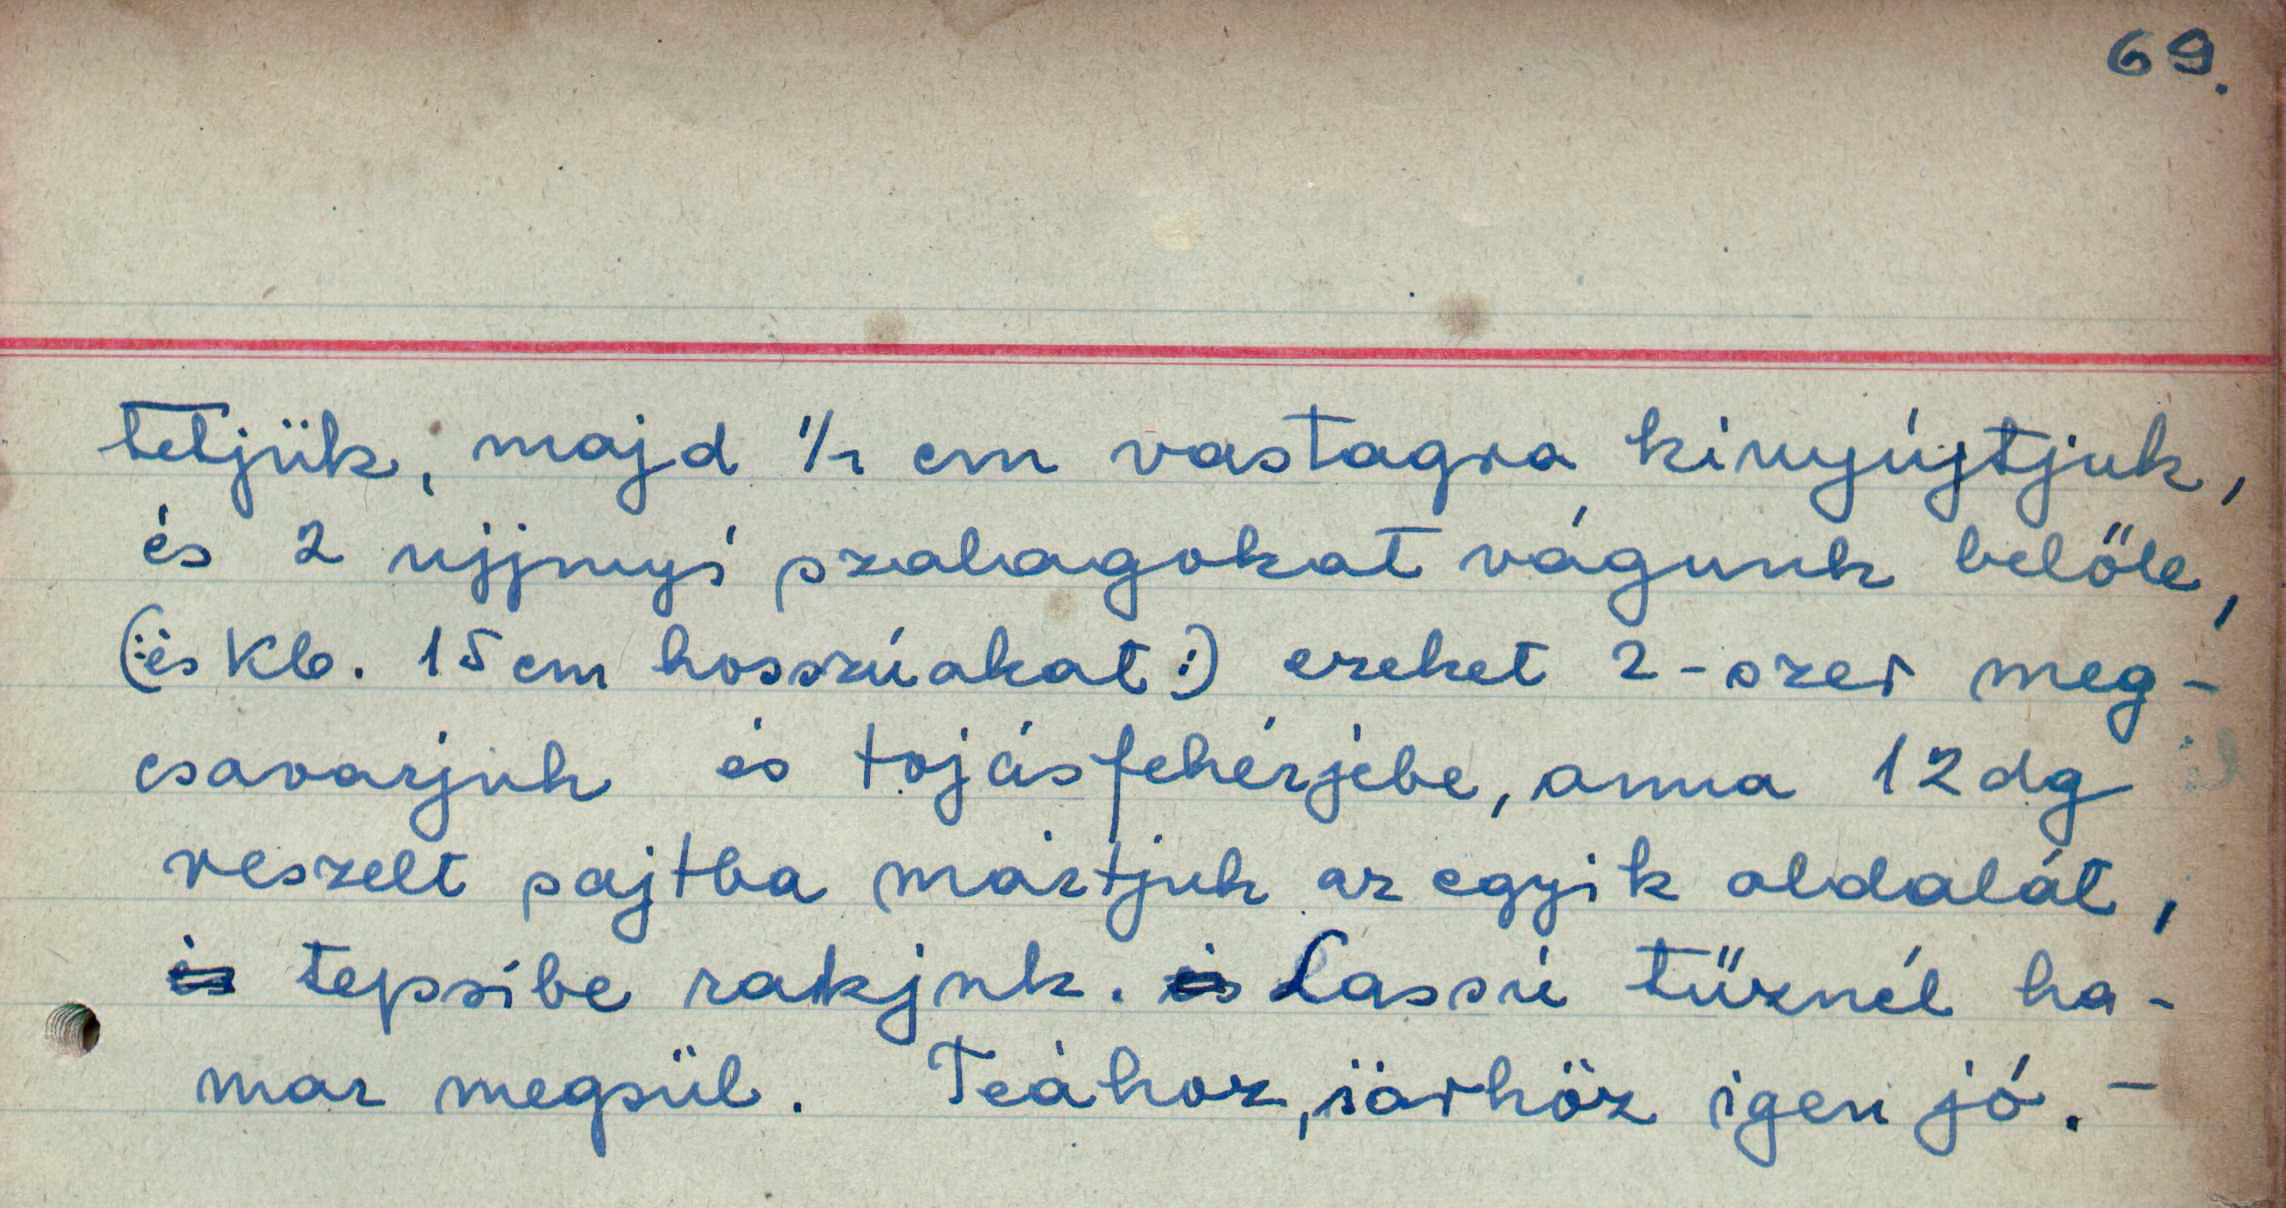 69.
teljük, majd 1/2 cm vastagra kinyújtjuk,
és 2 ujjnyi szalagokat vágunk belőle,
(:és kb. 15 cm hosszúakat:) ezeket 2-szer meg-
csavarjuk és tojásfehérjébe, anna 12 dg
reszelt sajtba mártjuk az egyik oldalát,
és tepsibe rakjuk. és Lassú tűznél ha-
mar megsül. Teához, sörhöz igen jó. –